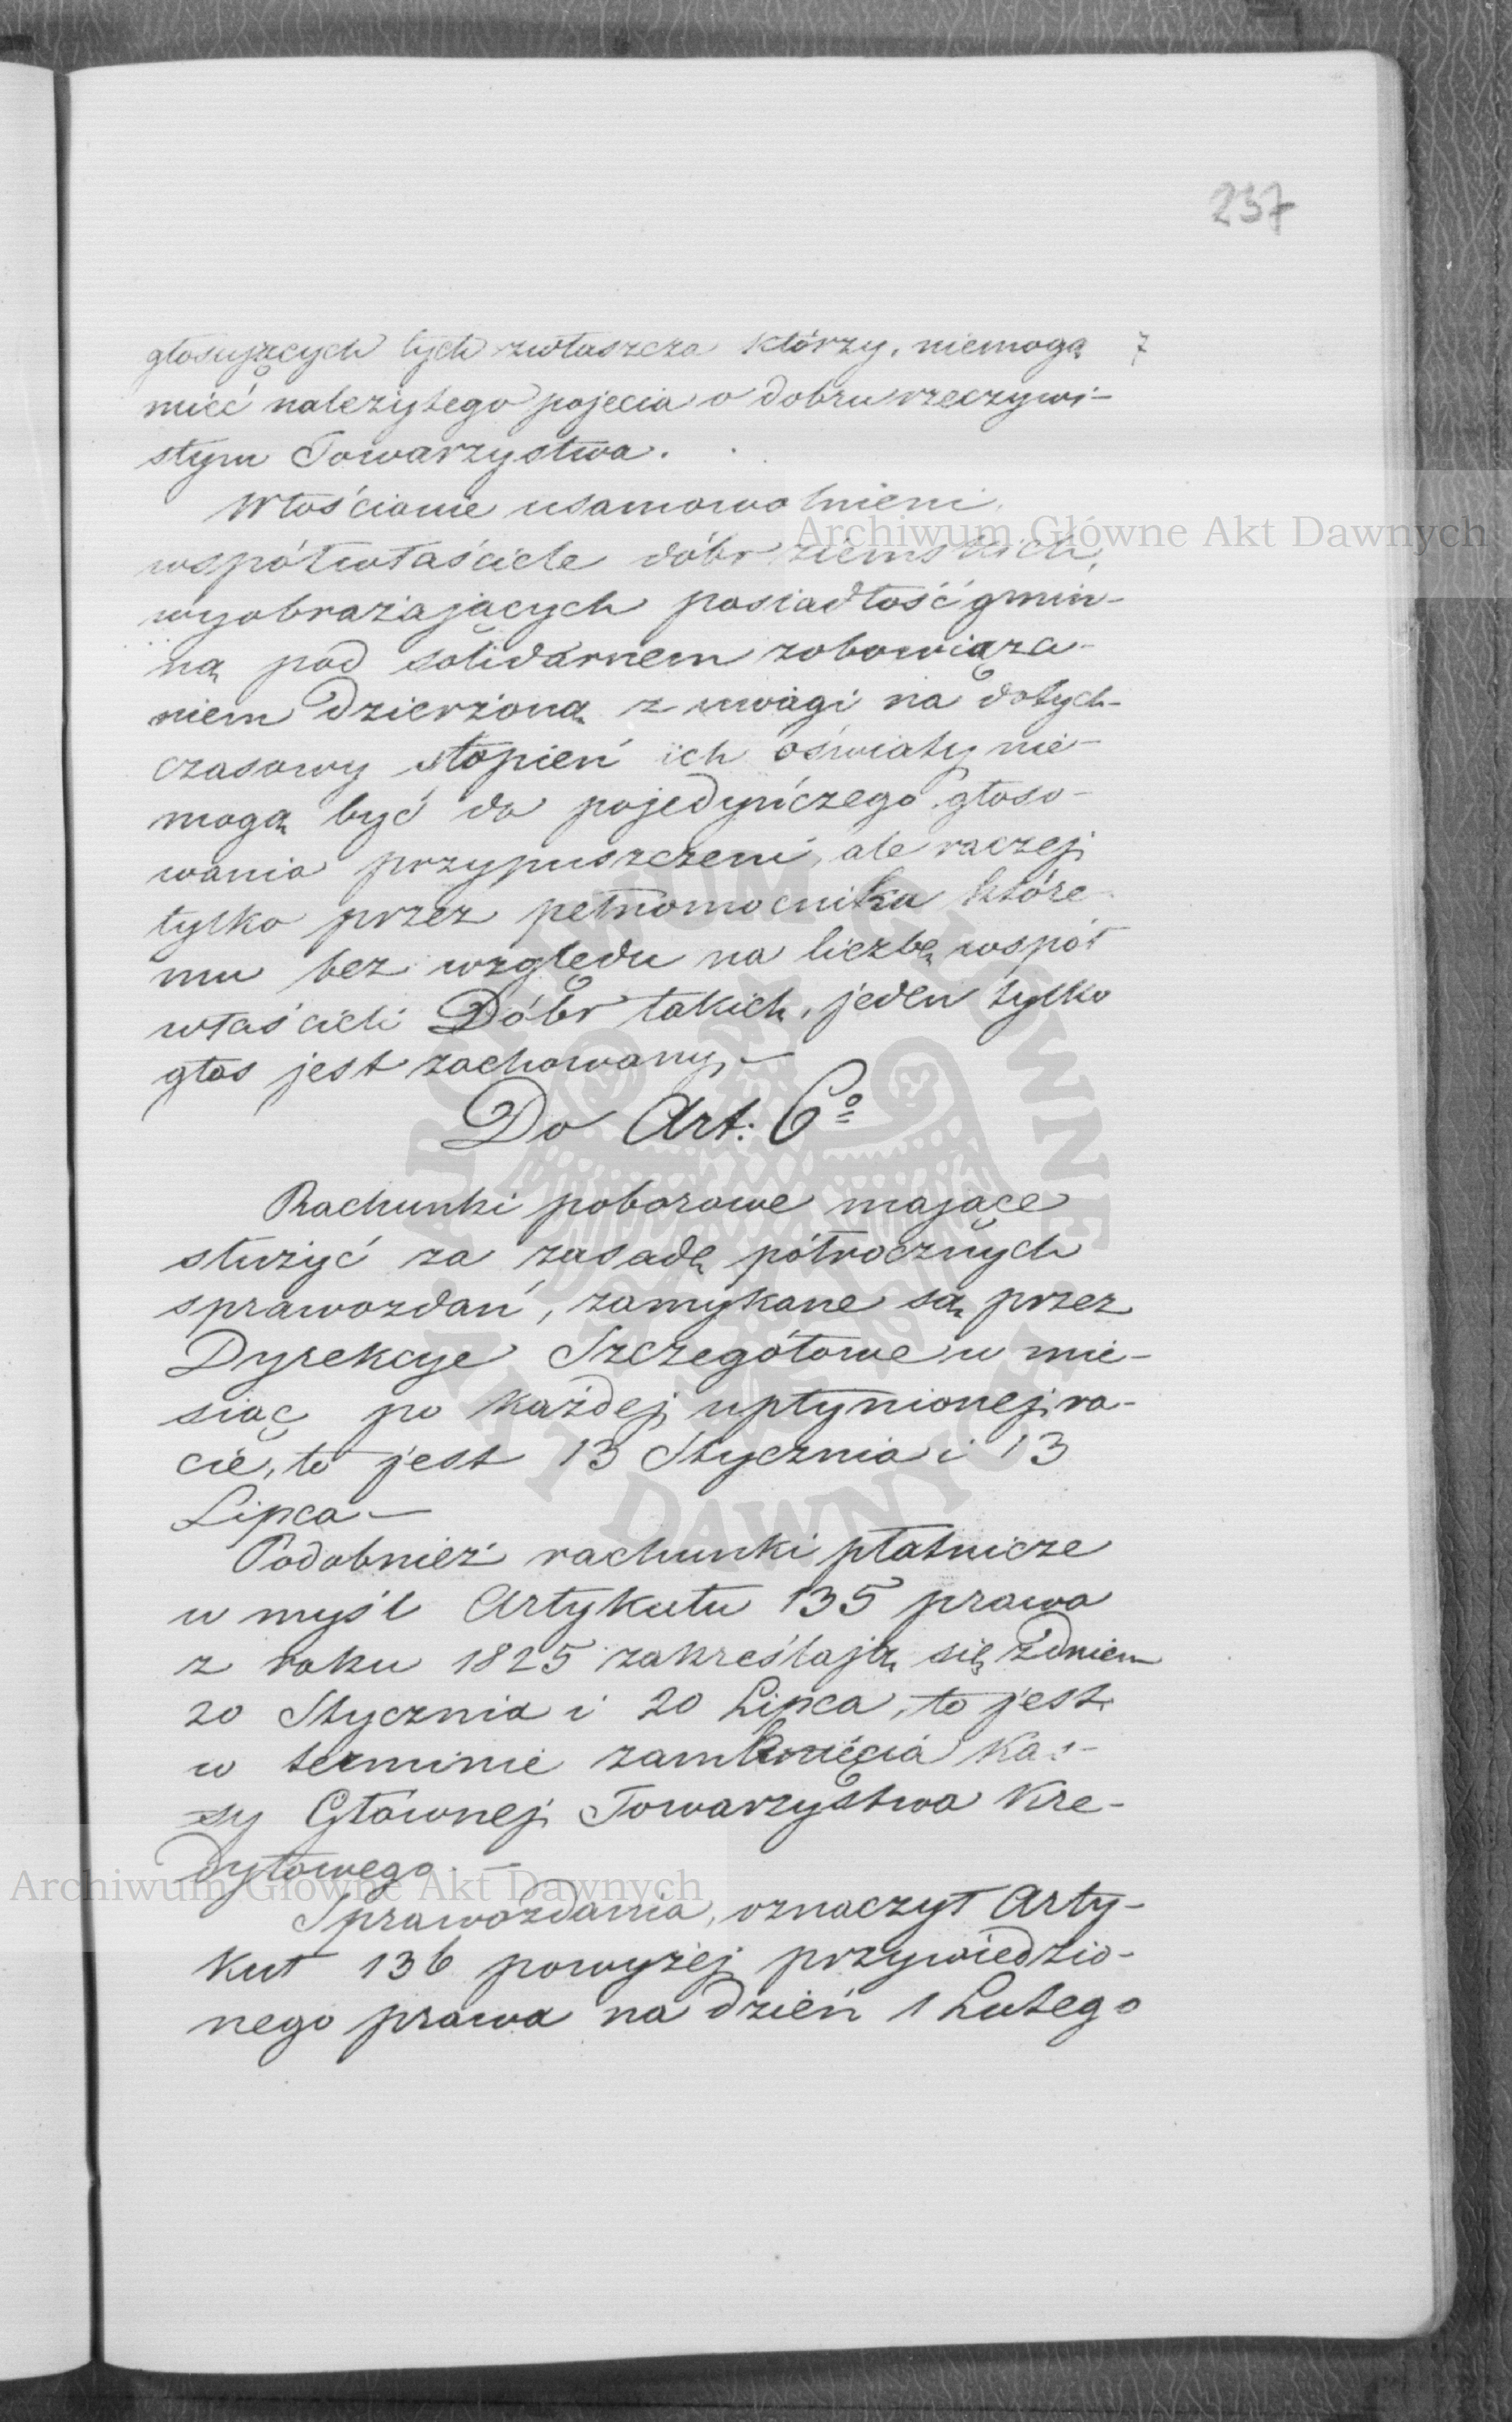 237
głosujących tych zwłaszcza którzy, niemogą 7
mieć należytego pojęcia o dobru rzeczywi-
stym Towarzystwa.
Włościanie usamowolnieni,
współwłaściciele dóbr ziemskich,
wyobrażających posiadłość gmin-
ną pod solidarnem zobowiąza-
niem dzierżoną z uwagi na dotych-
czasowy stopień ich oświaty nie-
mogą być do pojedyńczego głoso-
wania przypuszczeni, ale raczej
tylko przez pełnomocnika które-
mu bez względu na liczbę współ
właścicieli Dóbr takich, jeden tylko
głos jest zachowany,—
Do Art: 6º
Rachunki poborowe mające
służyć za zasadę półrocznych
sprawozdań, zamykane są przez
Dyrekcye Szczegółowe w mie-
siąc po każdej upłynionej ra-
cie, to jest 13 Stycznia i 13
Lipca—
Podobnież rachunki płatnicze
w myśl Artykułu 135 prawa
z roku 1825 zakreślają się z dniem
20 Stycznia i 20 Lipca, to jest
w terminie zamknięcia Kas-
sy Głównej Towarzystwa Kre-
dytowego.—
Sprawozdania, oznaczył Arty-
kuł 136 powyżej przywiedzio-
nego prawa na dzień 1 Lutego
Archiwum Główne Akt Dawnych
ARCHIWUM GŁÓWNE
AKT DAWNYCH
Archiwum Główne Akt Dawnych